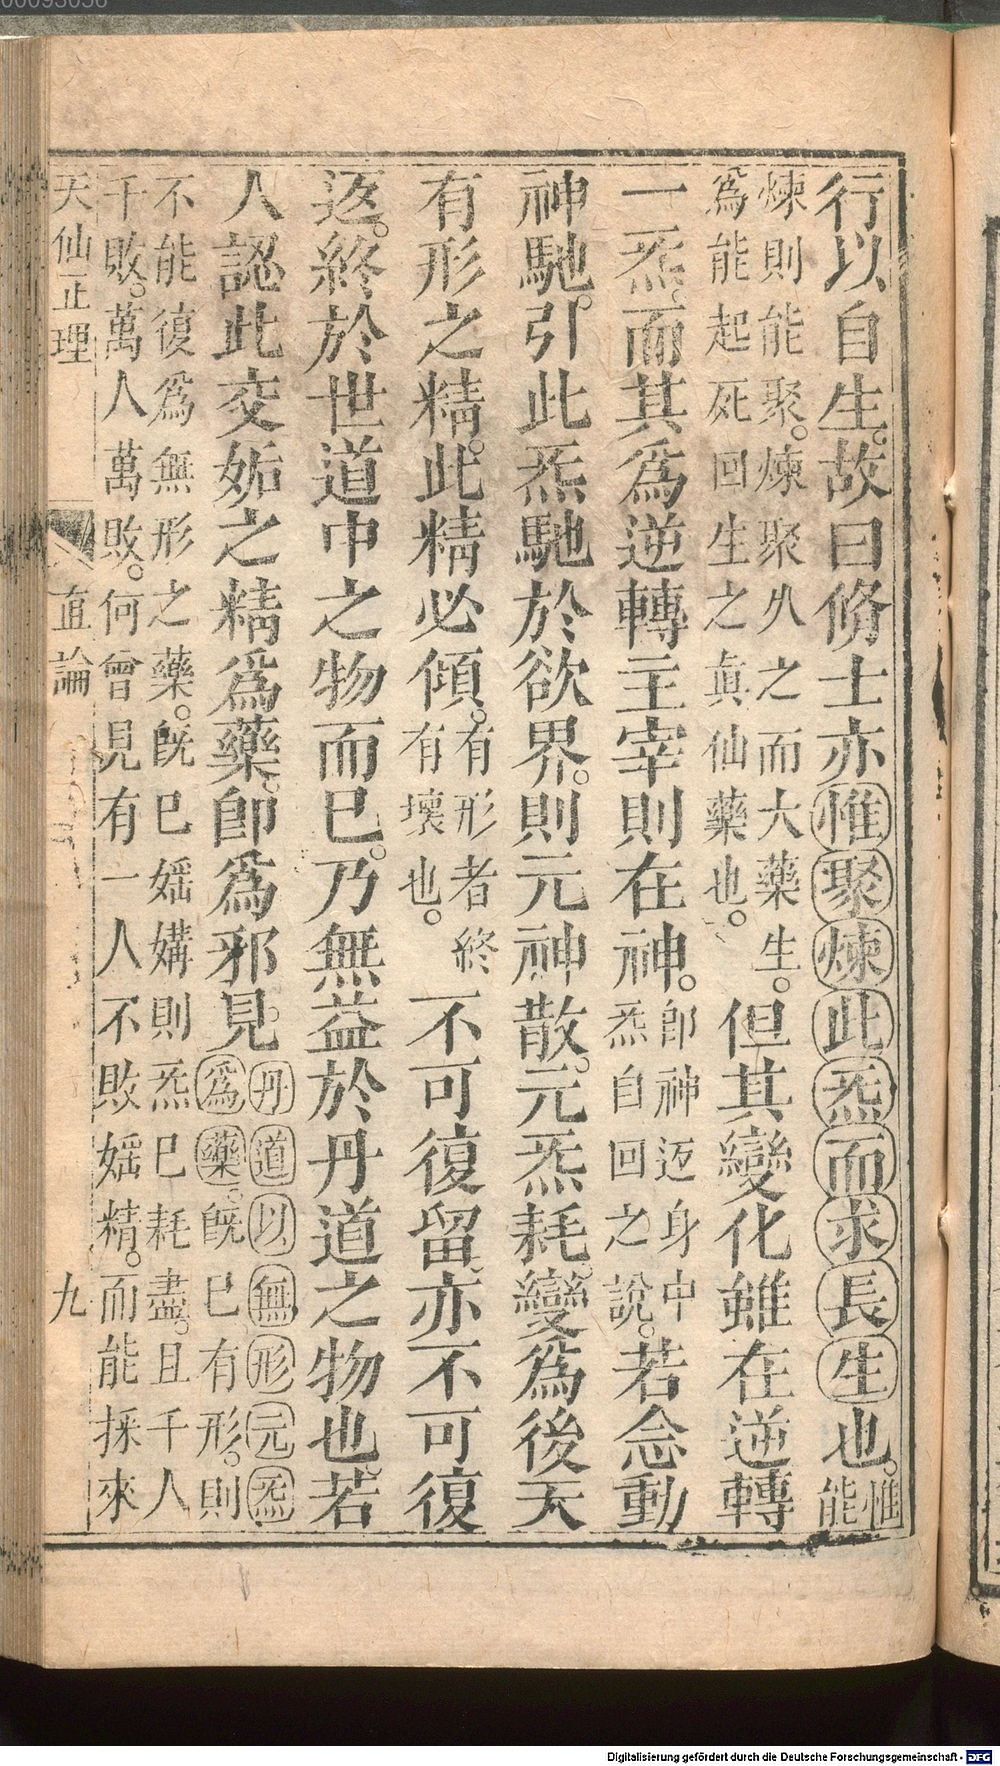 行以自生。故曰脩士亦惟聚煉此炁而求長生也。惟能
煉則能聚。煉聚久之而大藥生。
爲能起死回生之真仙藥也。
但其變化雖在逆轉
一炁。而其爲逆轉主宰則在神。卽神返身中炁自回之說。若念動
神馳。引此炁馳於欲界。則元神散。元炁耗。變爲後天
有形之精。此精必傾。有形者終有壞也。不可復留。亦不可復
返。終於世道中之物而已。乃無益於丹道之物也。若
人認此交姤之精爲藥。卽爲邪見。丹道以無形元炁
爲藥。旣已有形。則
不能復爲無形之藥。旣已婬媾則炁已耗盡。且千人
千敗。萬人萬敗。何曾見有一人不敗婬精。而能採來
天仙正理 直論 九
00093056
Digitalisierung gefördert durch die Deutsche Forschungsgemeinschaft - DFG